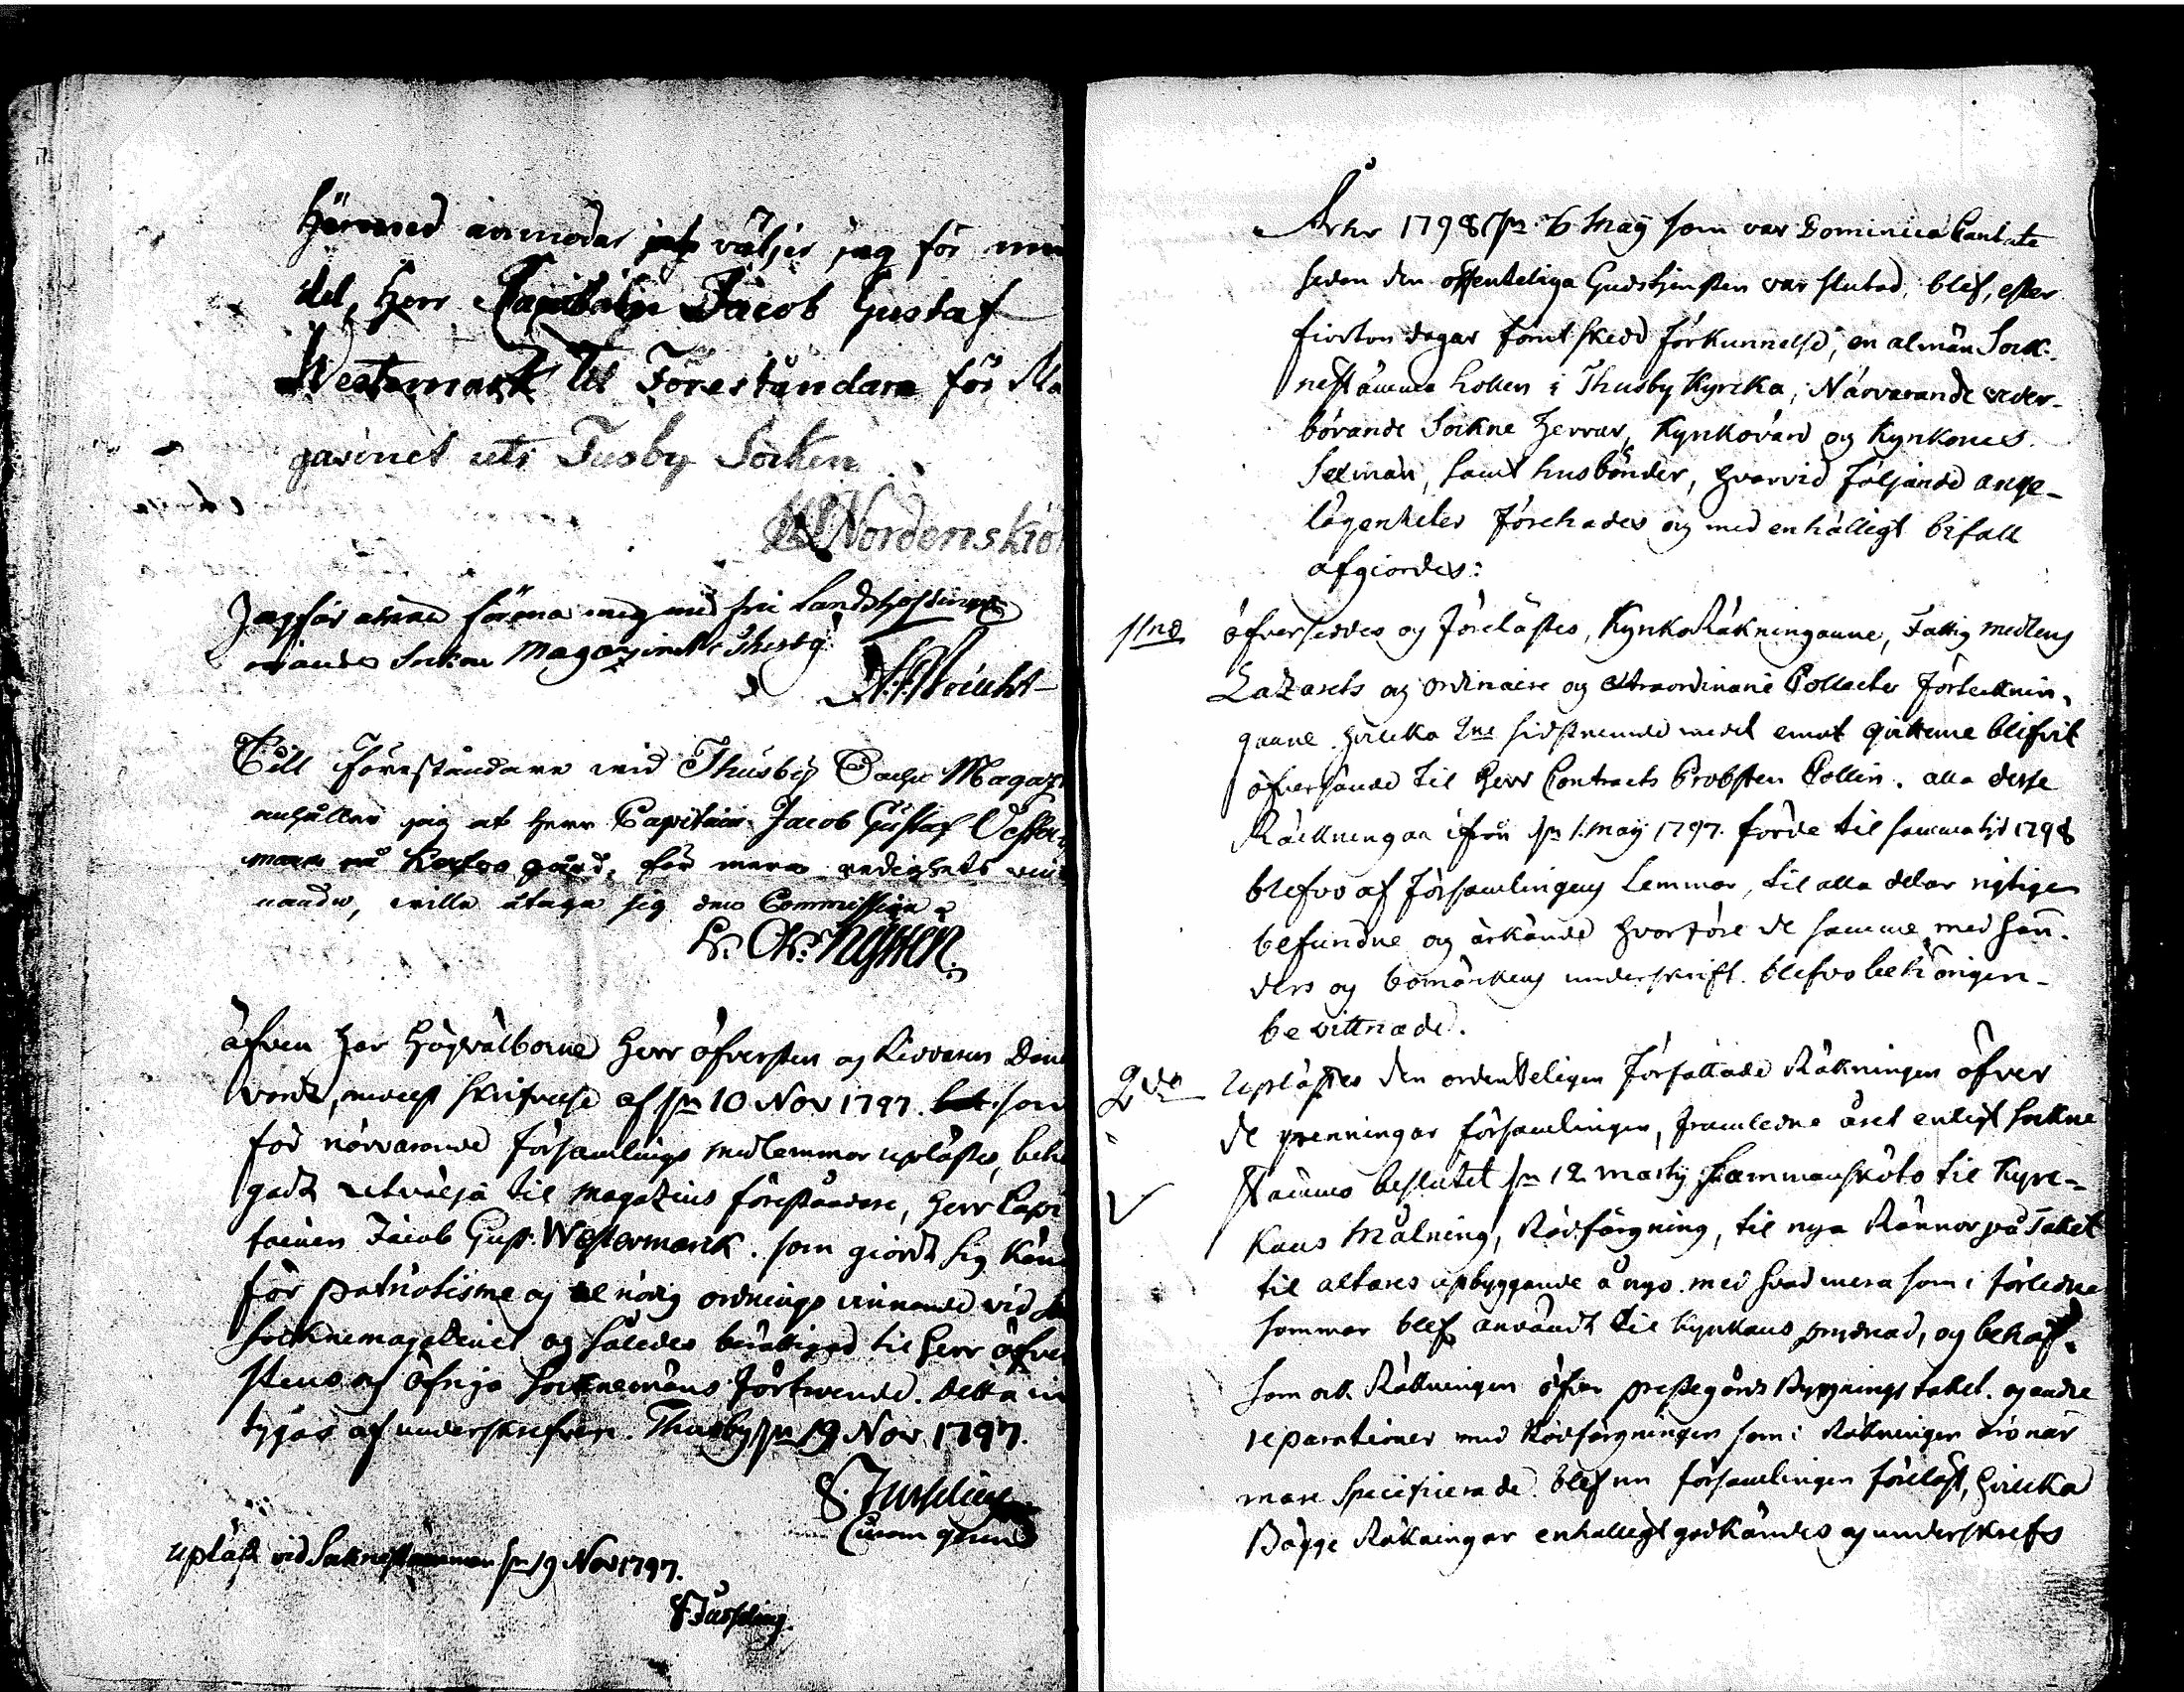 Härmed anmodas väljer jag för min
del, Herr Capitain Jacob Gustaf
Westermark til Föreståndare för Ma
gasinet uti Tusby Socken
Nordenskiöl
Jag får äfven förena mig med
Socken Magazinet i Thusby
Till Föreståndare wid Thusby Magaz
anhåller jag at Herr Capitain Jacob Gustaf Vester
mark på gård, för mera redighets vin
nande, wille åtaga sig denna Commission
äfven har Högvälborne Herr öfversten og Riddaren
medelst skrifvelse af dn 10 Nov 1797. som
för närvarande församlings medlemmar uplästes, beha
gadt utvälja til magazins föreståndare, Herr Capi
tainen Jacob Gust. Westermarck. som giordt sig känd
för patriotisme og nödig ordnings vinnande vid
Socknemagazinet og således berättigad til Herr öfver
stens og öfriga Socknemäns förtroende. Detta in
tygas af underskrefven. Thusby dn 19 Nov 1797.
upläst vid Soknestämman dn 19 Nov 1797.
Åhr 1798 dn 6 Maÿ som var Dominica Cantate
sedan den offenteliga Gudstjensten var slutad, blef, efter
fiorton dagar förut skedd förkunnelse, en almän Sock-
nestämma hollen i Thusby Kyrcka, Närvarande veder-
börande Sockne Herrar, Kyrkovärd og Kyrkones
Sexmän, samt husbönder, hvarvid följande ange-
lägenheter förehades og med enhälligt bifall
afgiordes:
1mo öfversedes og förelästes, KyrkoRäkningarne, Fattig medlens
Lazarets og ordinaire og extraordinarie Collecter förtecknin-
garne hvilka sidstnemde medel emot qvittence blifvit
öfversände til Herr Contracts Probsten Collin. alla desse
Räckningar ifrån dn 1. maÿ 1797. förde til samma tid 1798
blefvo af församlingens Lemmar, til alla delar rigtige
befundne og ärkände hvarföre de samme med hän-
ders og bomärkens underskrift. blefvo behörigen
bevittnade.
2do Uplästes den ordenteligen författade Räkningen öfver
de penningar församlingen, framledne året enligt Sockne
stämmo beslutet dn 12 martij sammanskôto til Kyrc-
kans Målning, Rödfärgning, til nya Rännor på Taket
til altarets upbyggande å nyo. med hvad mera som i förledne
sommar blef användt til Kyrkans prydnad, og behof.
som ock Räkningen öfver prestegårds Bygnings taket. og andre
reparationer med Rödfärgningen som i Räkningen äro när
mare Specificerade. blef nu församlingen föreläst, hvilcka
Bägge Räkningar enhälligt godkändes og underskrefs